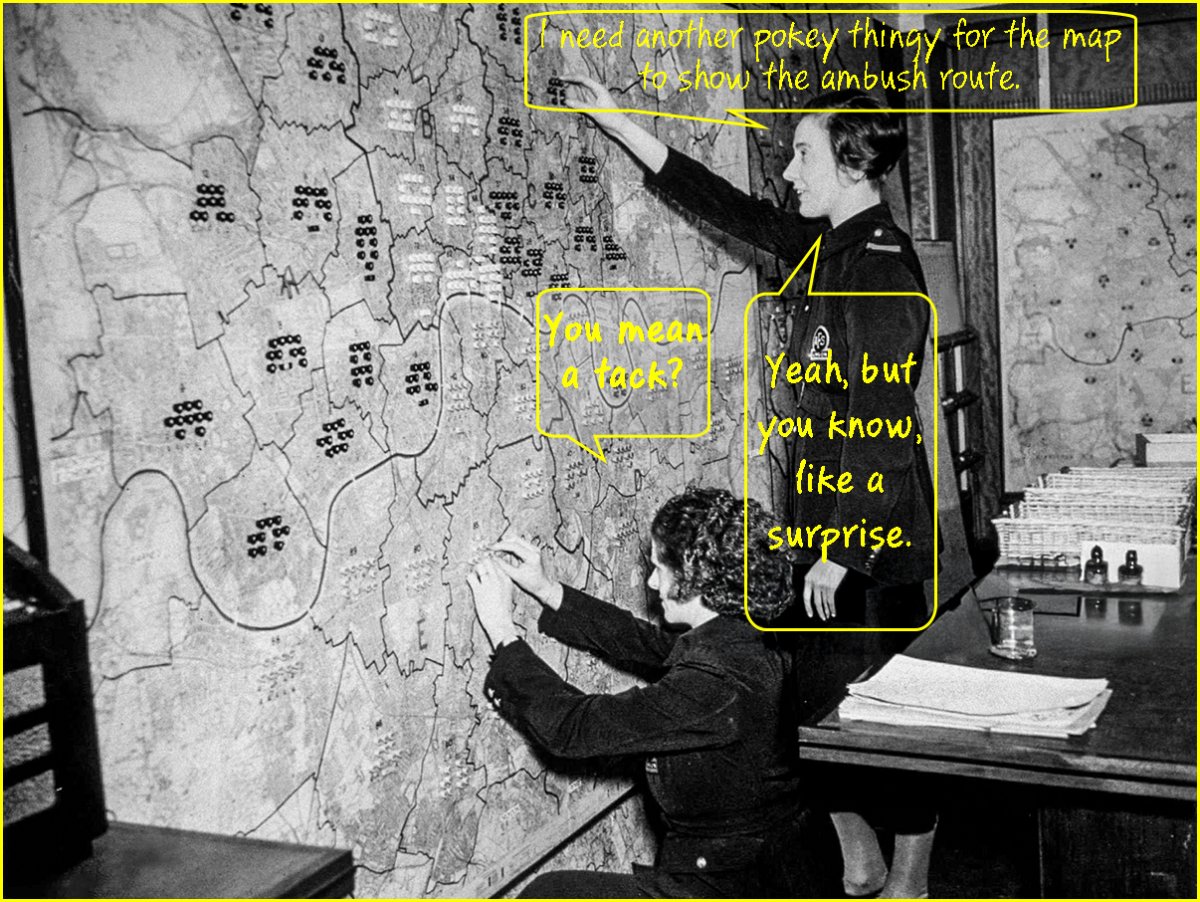 I need another pokey thingy for the map
to show the ambush route.
You mean
a tack?
Yeah, but
you know,
like a
surprise.
AFS